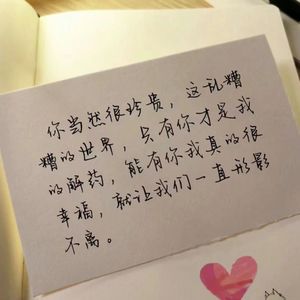 你当然很珍贵，这乱糟
糟的世界，只有你才是我
的解药，能有你我真的很
幸福，就让我们一直形影
不离。